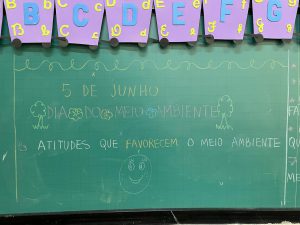 B C D E F G
5 DE JUNHO
DIA DO MEIO AMBIENTE
ATITUDES QUE FAVORECEM O MEIO AMBIENTE